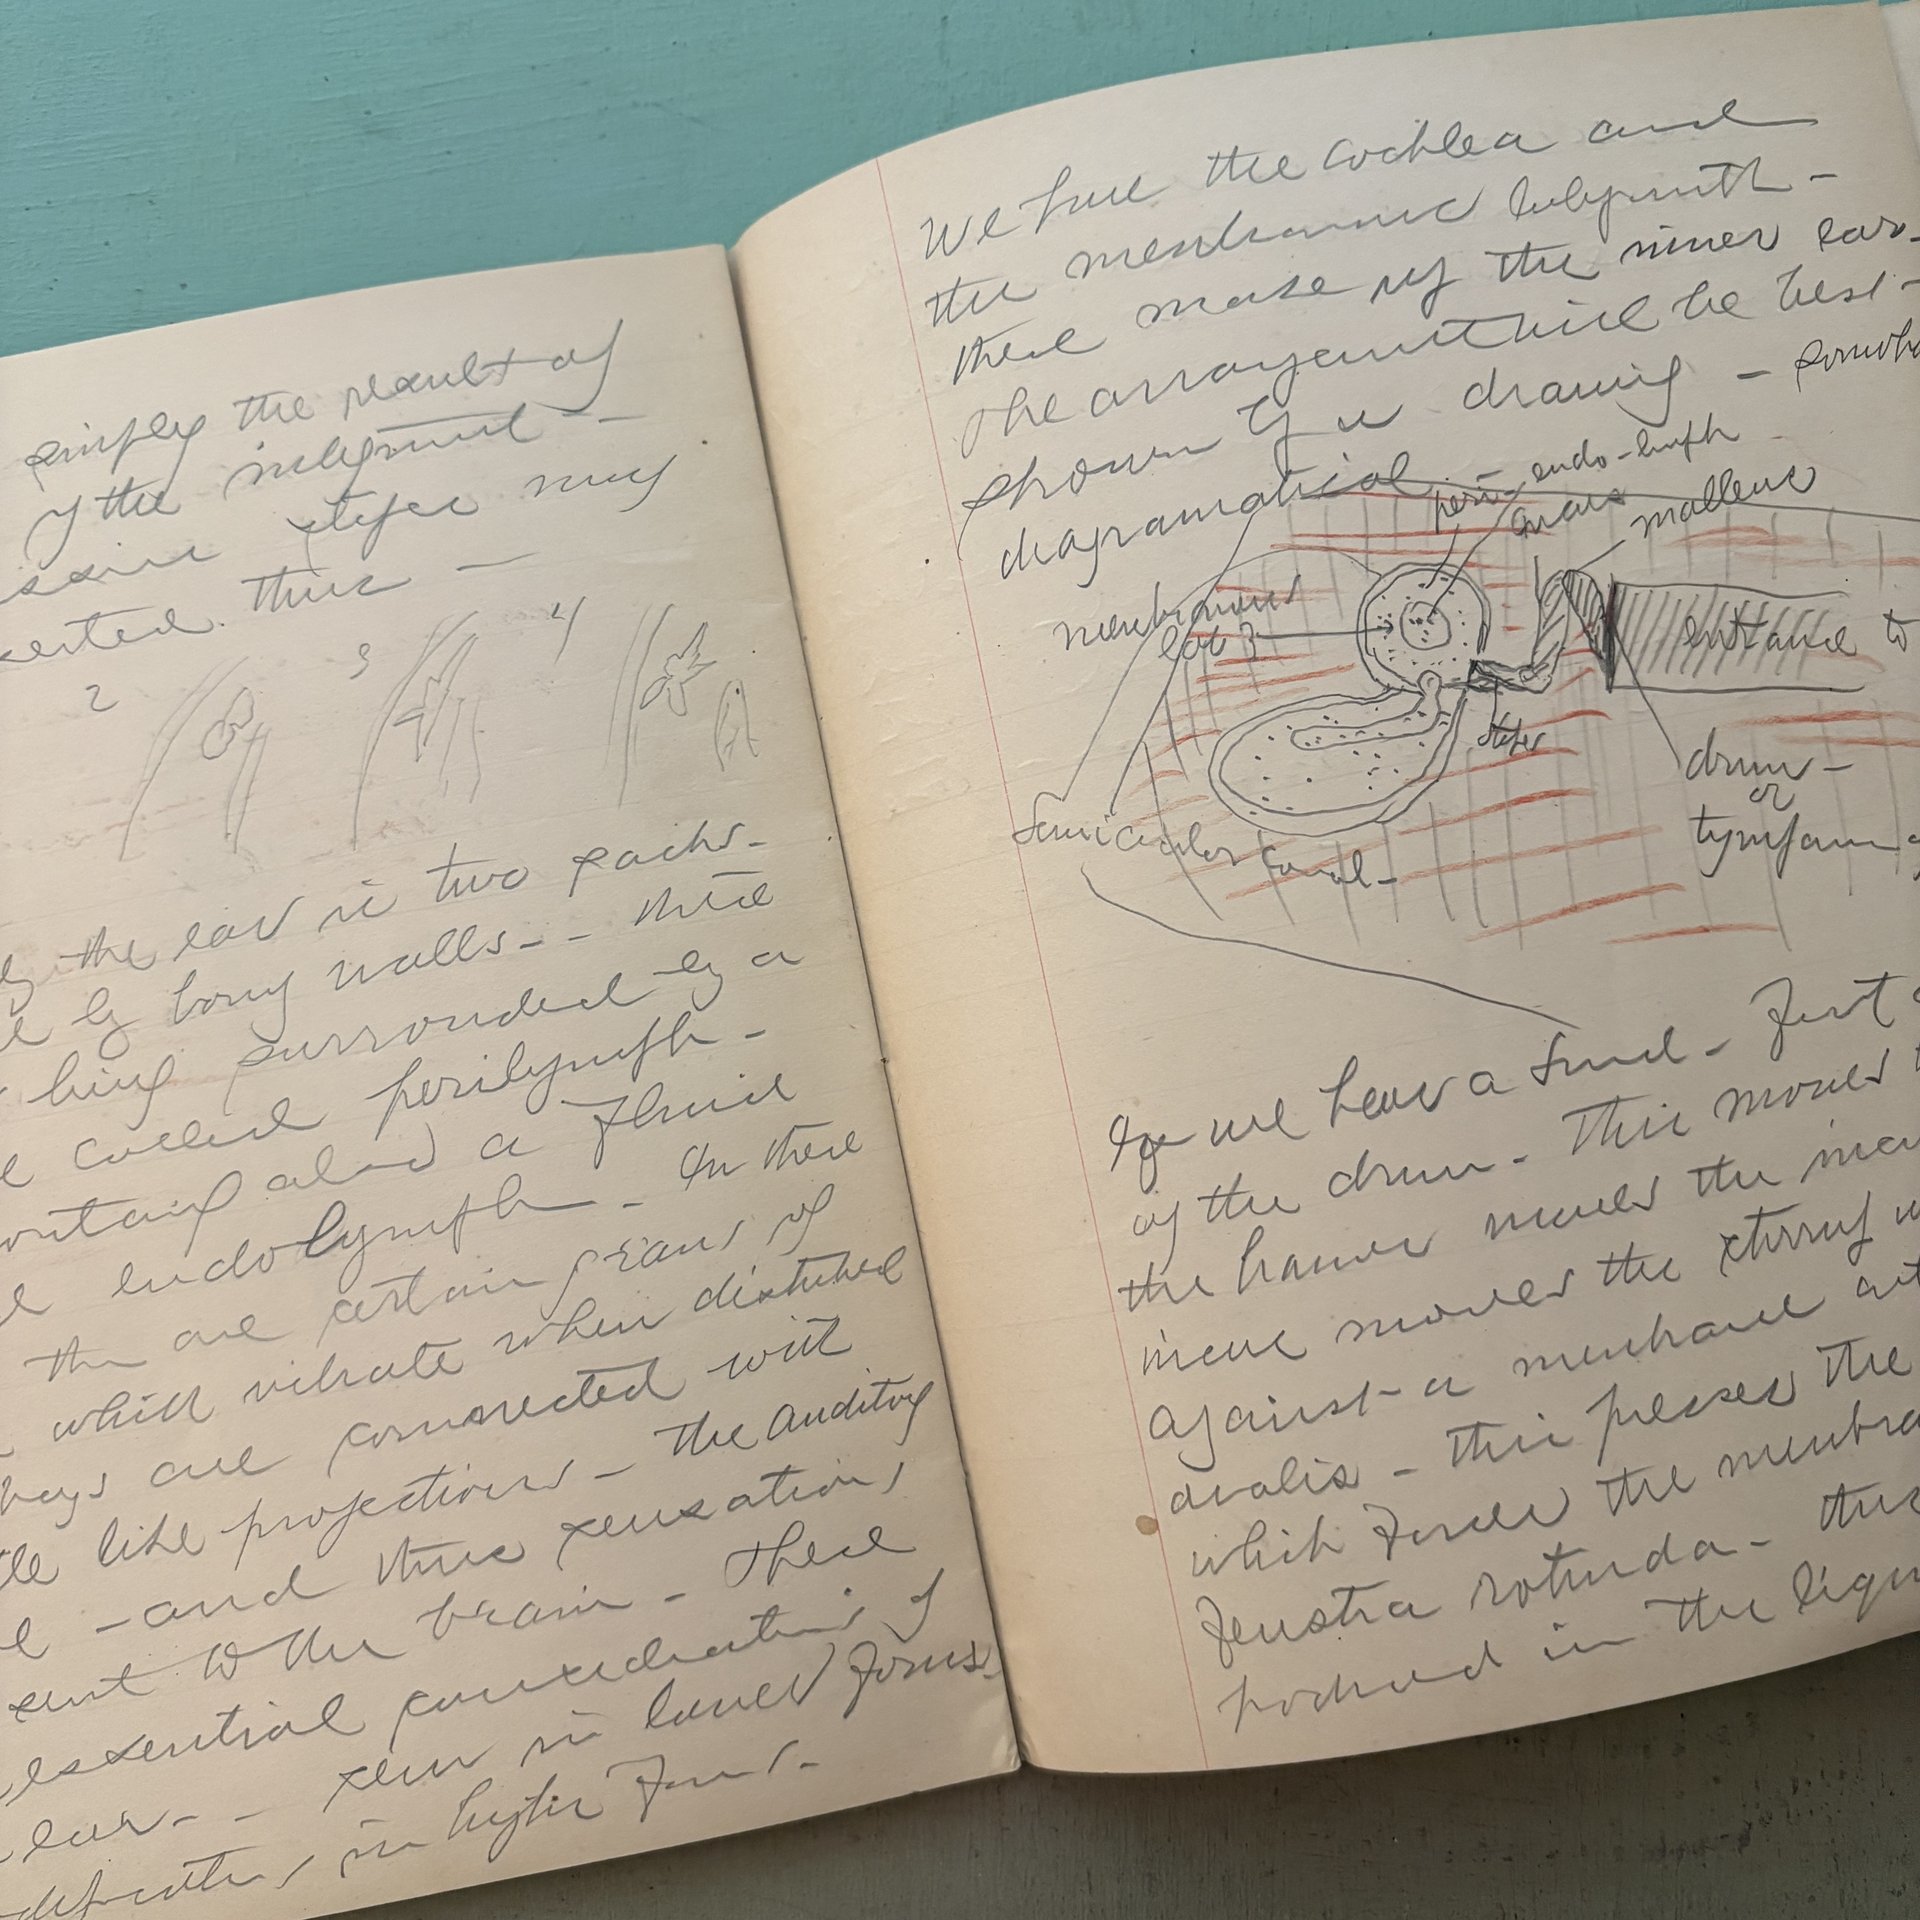 simply the result of
of the integument -
stages may
thus -
2 3 4
the ear is two sachs -
by bony walls - - these
being surrounded by a
called perilymph -
containing also a fluid
endolymph - In these
there are certain grains of
which vibrate when disturbed
are connected with
like projections - the auditory
- and thus sensations
sent to the brain - These
essential consideration of
ear - - seen in lower forms
in higher forms -
We have the cochlea and
the membranous labyrinth -
these make up the inner ear -
The arrangement will be best -
shown by a drawing -
diagramatical
peri - endo-lymph
incus
malleus
membranous
lab
entrance to
stapes
drum -
or
Semicircular canal -
If we hear a sound - First
of the drum - This moves
the hamer moves the
incus moves the stirrup
against a membrane
ovalis - this presses the
which forces the
fenstra rotunda - thus
produced in the